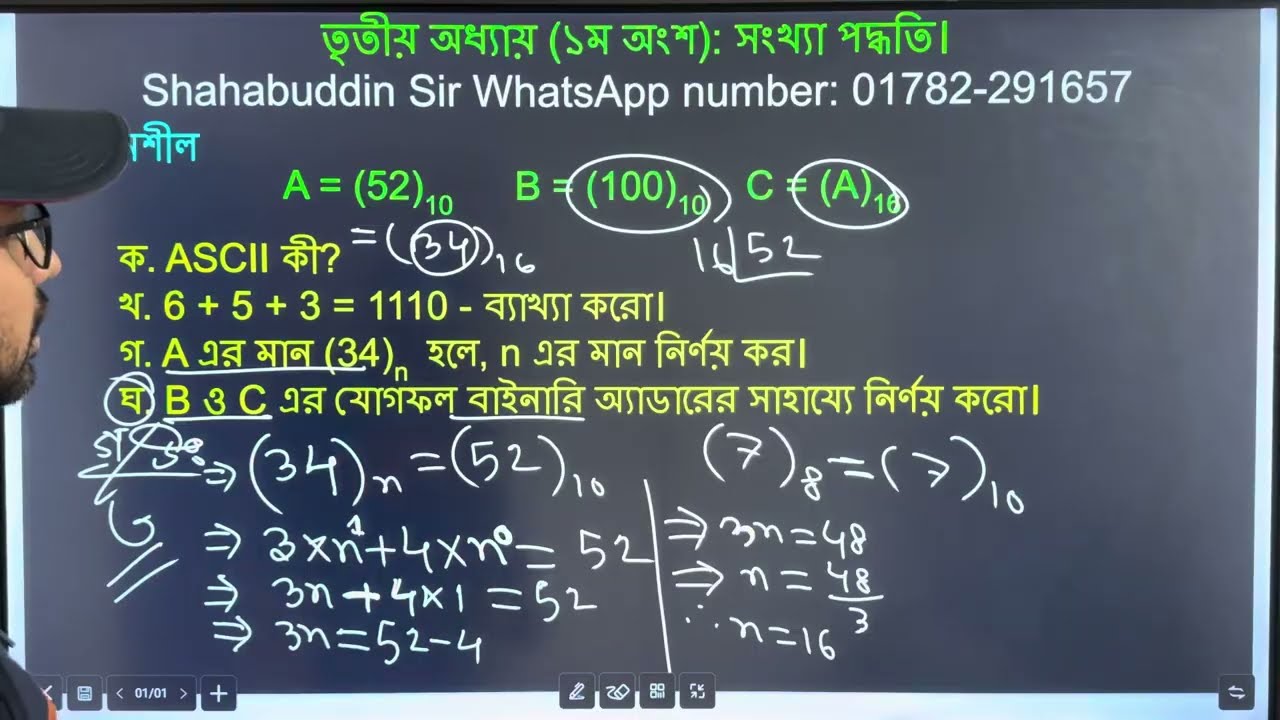 তৃতীয় অধ্যায় (১ম অংশ): সংখ্যা পদ্ধতি।
Shahabuddin Sir WhatsApp number: 01782-291657
শীল
A = (52)10 B = (100)10 C = (A)16
= (34)16 16 52
ক. ASCII কী?
খ. 6 + 5 + 3 = 1110 - ব্যাখ্যা করো।
গ. A এর মান (34)n হলে, n এর মান নির্ণয় কর।
ঘ. B ও C এর যোগফল বাইনারি অ্যাডারের সাহায্যে নির্ণয় করো।
⇒ (34)n = (52)10 (7)8 = (7)10
⇒ 3×n¹+4×n⁰ = 52
⇒ 3n + 4×1 = 52
⇒ 3n = 52-4
⇒ 3n = 48
⇒ n = 48/3
∴ n = 16
01/01